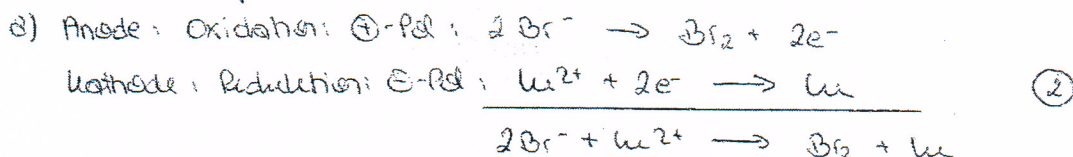 a) Anode: Oxidation: ⊕-Pol: 2 Br⁻ → Br₂ + 2e⁻
Kathode: Reduktion: ⊖-Pol: Cu²⁺ + 2e⁻ → Cu ②
2Br⁻ + Cu²⁺ → Br₂ + Cu